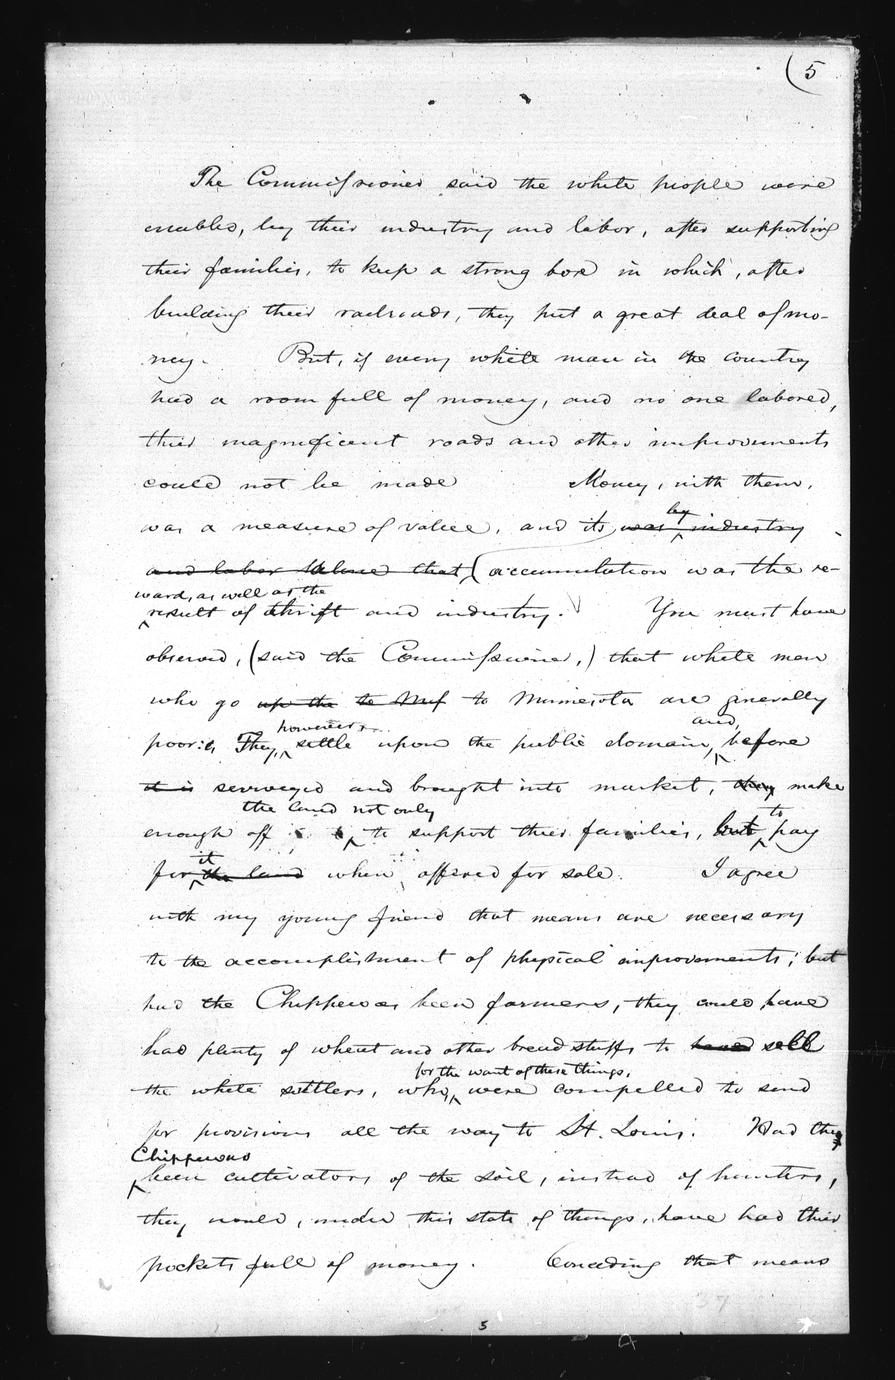 (5
The Commissioner said the white people were
enabled, by their industry and labor, after supporting
their families, to keep a strong box in which, after
building their railroads, they put a great deal of mo-
ney. But, if every white man in the country
had a room full of money, and no one labored,
their magnificent roads and other improvements
could not be made Money, with them,
by
was a measure of value, and its was industry
and labor alone that accumulation was the re-
ward, as well as the
result of thrift and industry. You must have
observed, (said the Commissioner,) that white men
who go up the to Mis to Minnesota are generally
however, and,
poor. They, settle upon the public domain, before
it is surveyed and brought into market, they make
the land not only to
enough off to support their families, but pay
it
for the land when offered for sale. I agree
with my young friend that means are necessary
to the accomplishment of physical improvements; but
had the Chippewas been farmers, they could have
had plenty of wheat and other bread stuffs to have sell
for the want of these things,
the white settlers, who, were compelled to send
for provisions all the way to St. Louis. Had they
Chippewas
been cultivators of the soil, instead of hunters,
they would, under this state of things, have had their
pockets full of money. Conceding that means
37
5